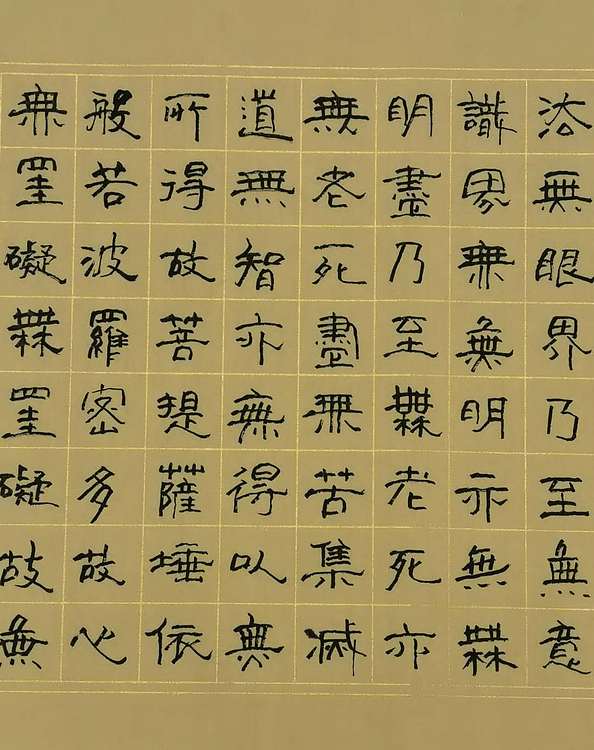 法無眼界乃至無意
識界無無明亦無無
明盡乃至無老死亦
無老死盡無苦集滅
道無智亦無得以無
所得故菩提薩埵依
般若波羅密多故心
無罣礙無罣礙故無